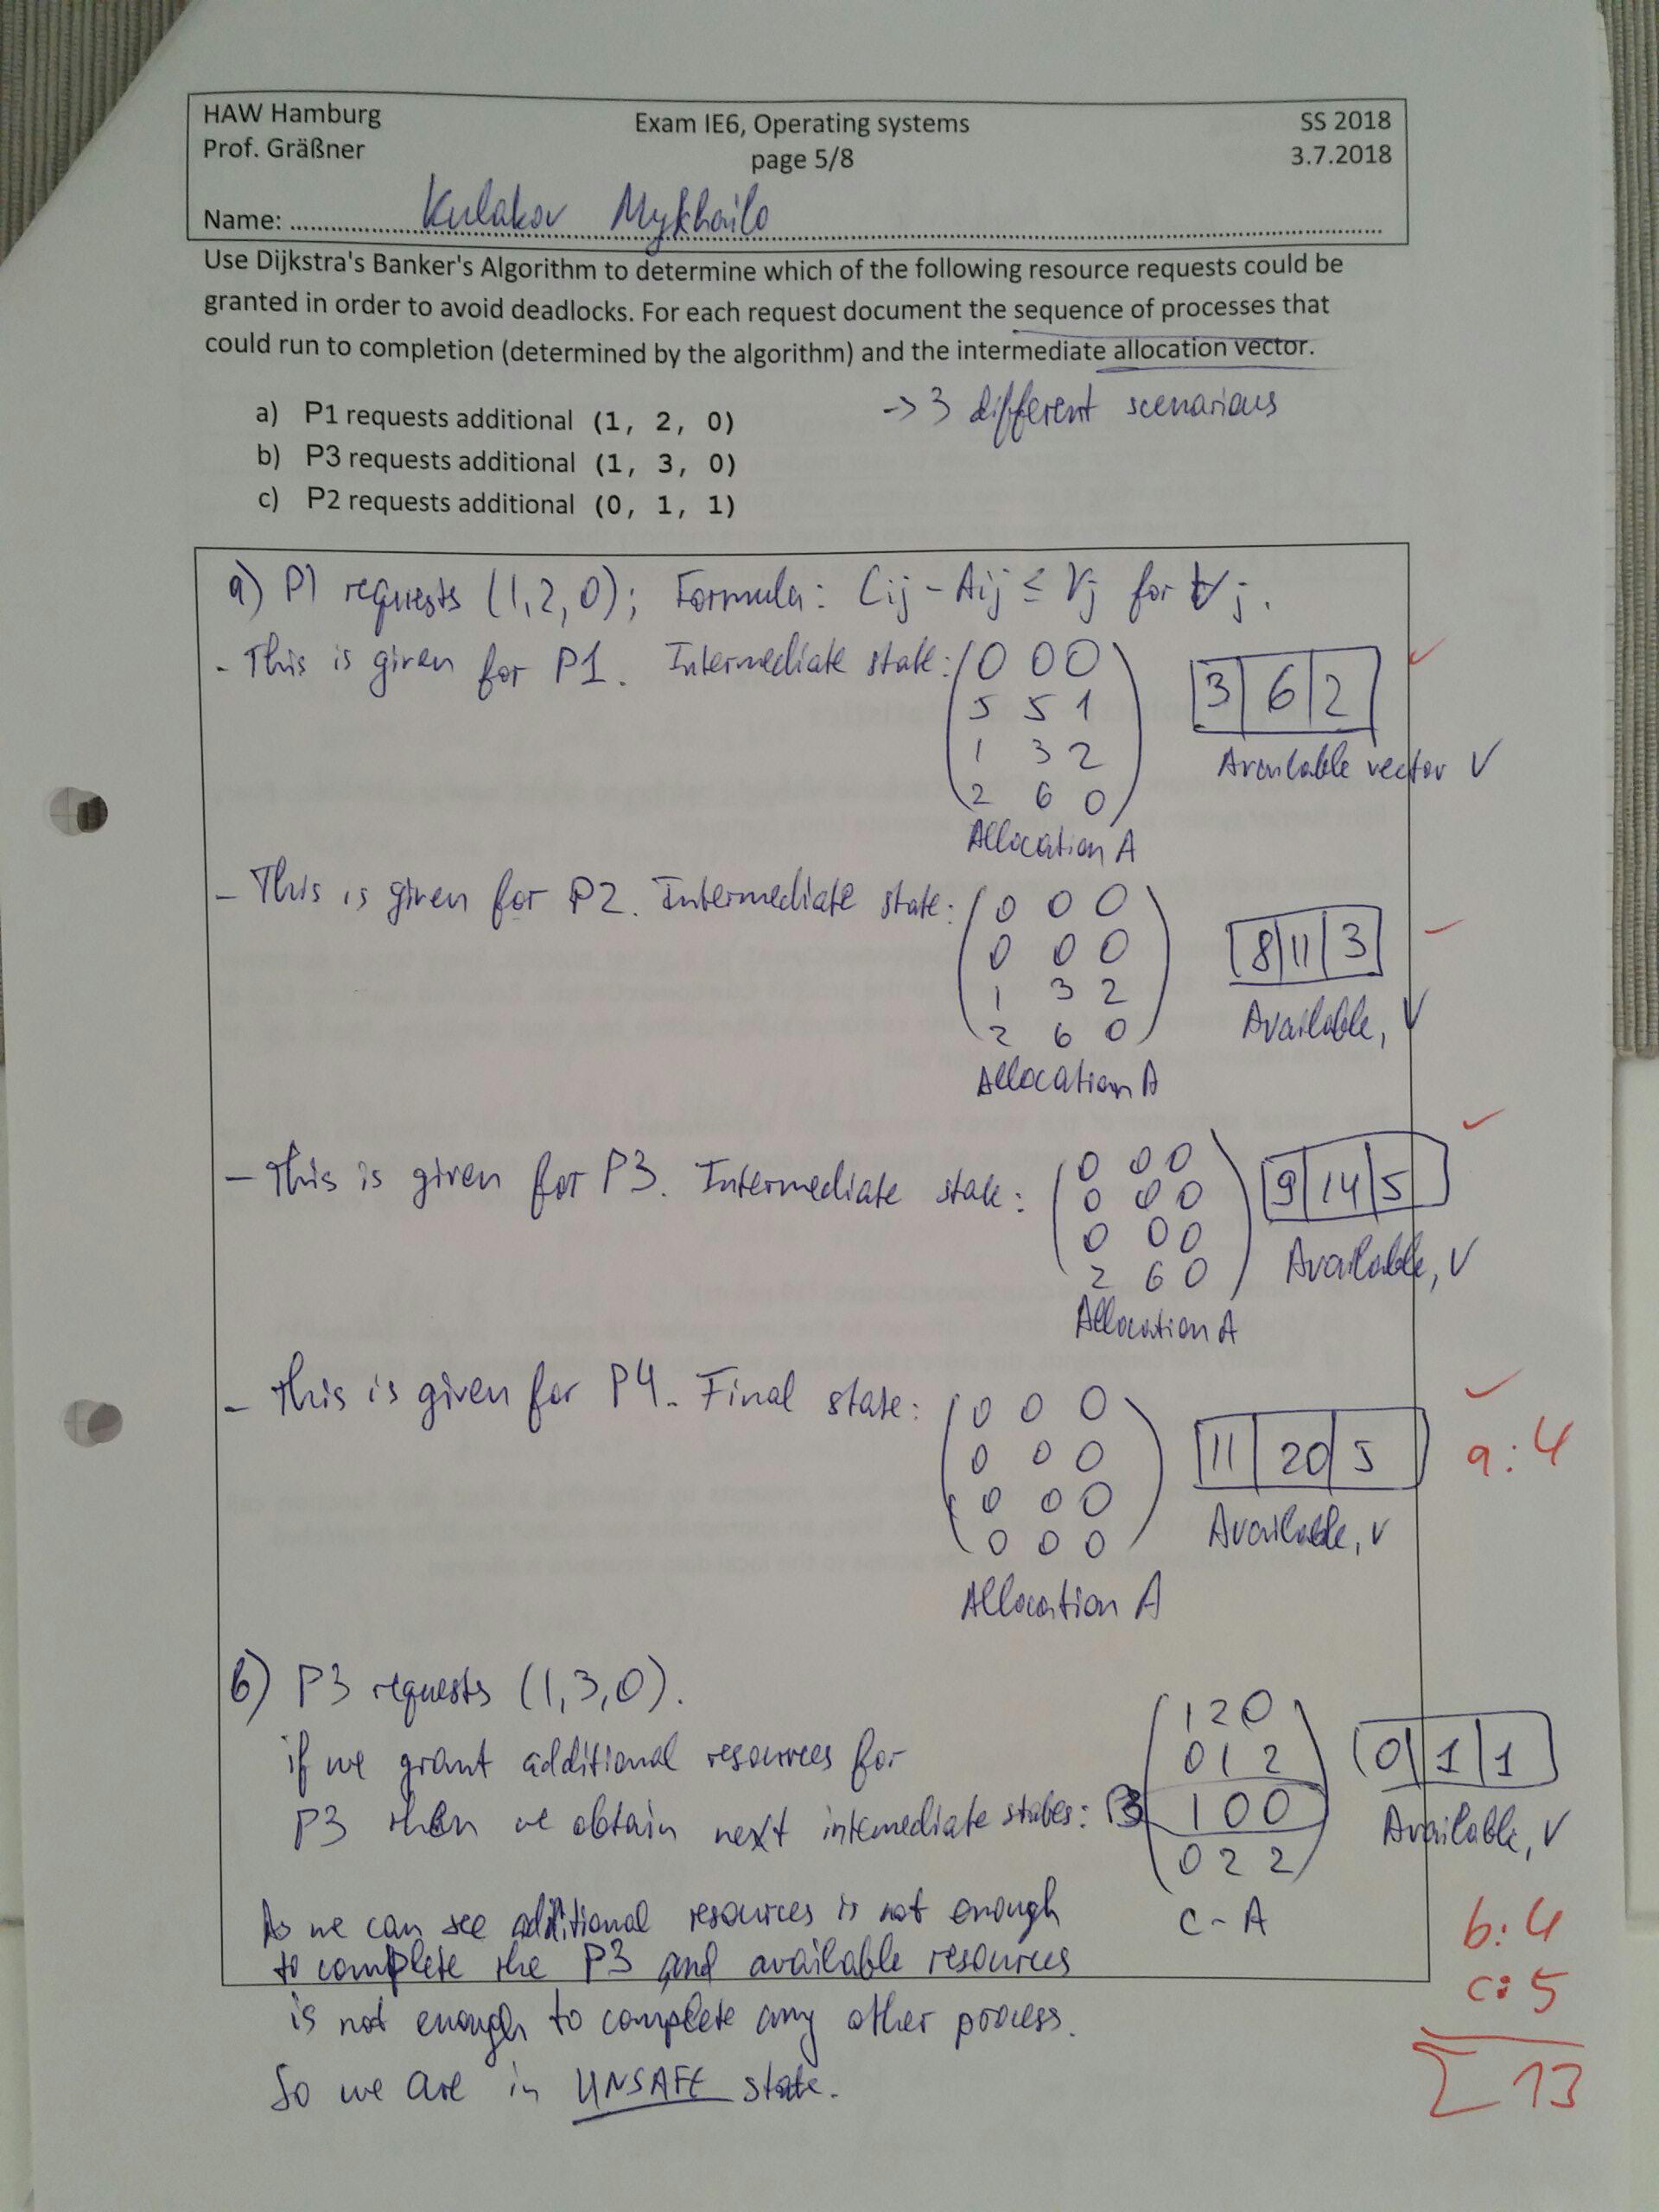 HAW Hamburg
Exam IE6, Operating systems
SS 2018
Prof. Gräßner
page 5/8
3.7.2018
Name: Kulakov Mykhailo
Use Dijkstra's Banker's Algorithm to determine which of the following resource requests could be
granted in order to avoid deadlocks. For each request document the sequence of processes that
could run to completion (determined by the algorithm) and the intermediate allocation vector.
-> 3 different scenarious
a) P1 requests additional (1, 2, 0)
b) P3 requests additional (1, 3, 0)
c) P2 requests additional (0, 1, 1)
a) P1 requests (1,2,0); Formula: Cij - Aij ≤ Vj for ∀j.
- This is given for P1. Intermediate state: 0 0 0
5 5 1
1 3 2
2 6 0
Allocation A
3 6 2
Available vector V
- This is given for P2. Intermediate state: 0 0 0
0 0 0
1 3 2
2 6 0
Allocation A
8 11 3
Available, V
- This is given for P3. Intermediate state: 0 0 0
0 0 0
0 0 0
2 6 0
Allocation A
9 14 5
Available, V
- This is given for P4. Final state: 0 0 0
0 0 0
0 0 0
0 0 0
Allocation A
11 20 5
Available, V
a: 4
b) P3 requests (1,3,0).
if we grant additional resources for
P3 then we obtain next intemediate states: P3
1 2 0
0 1 2
1 0 0
0 2 2
C - A
0 1 1
Available, V
As we can see additional resources is not enough
to complete the P3 and available resources
is not enough to complete any other process.
So we are in UNSAFE state.
b: 4
c: 5
Σ 13